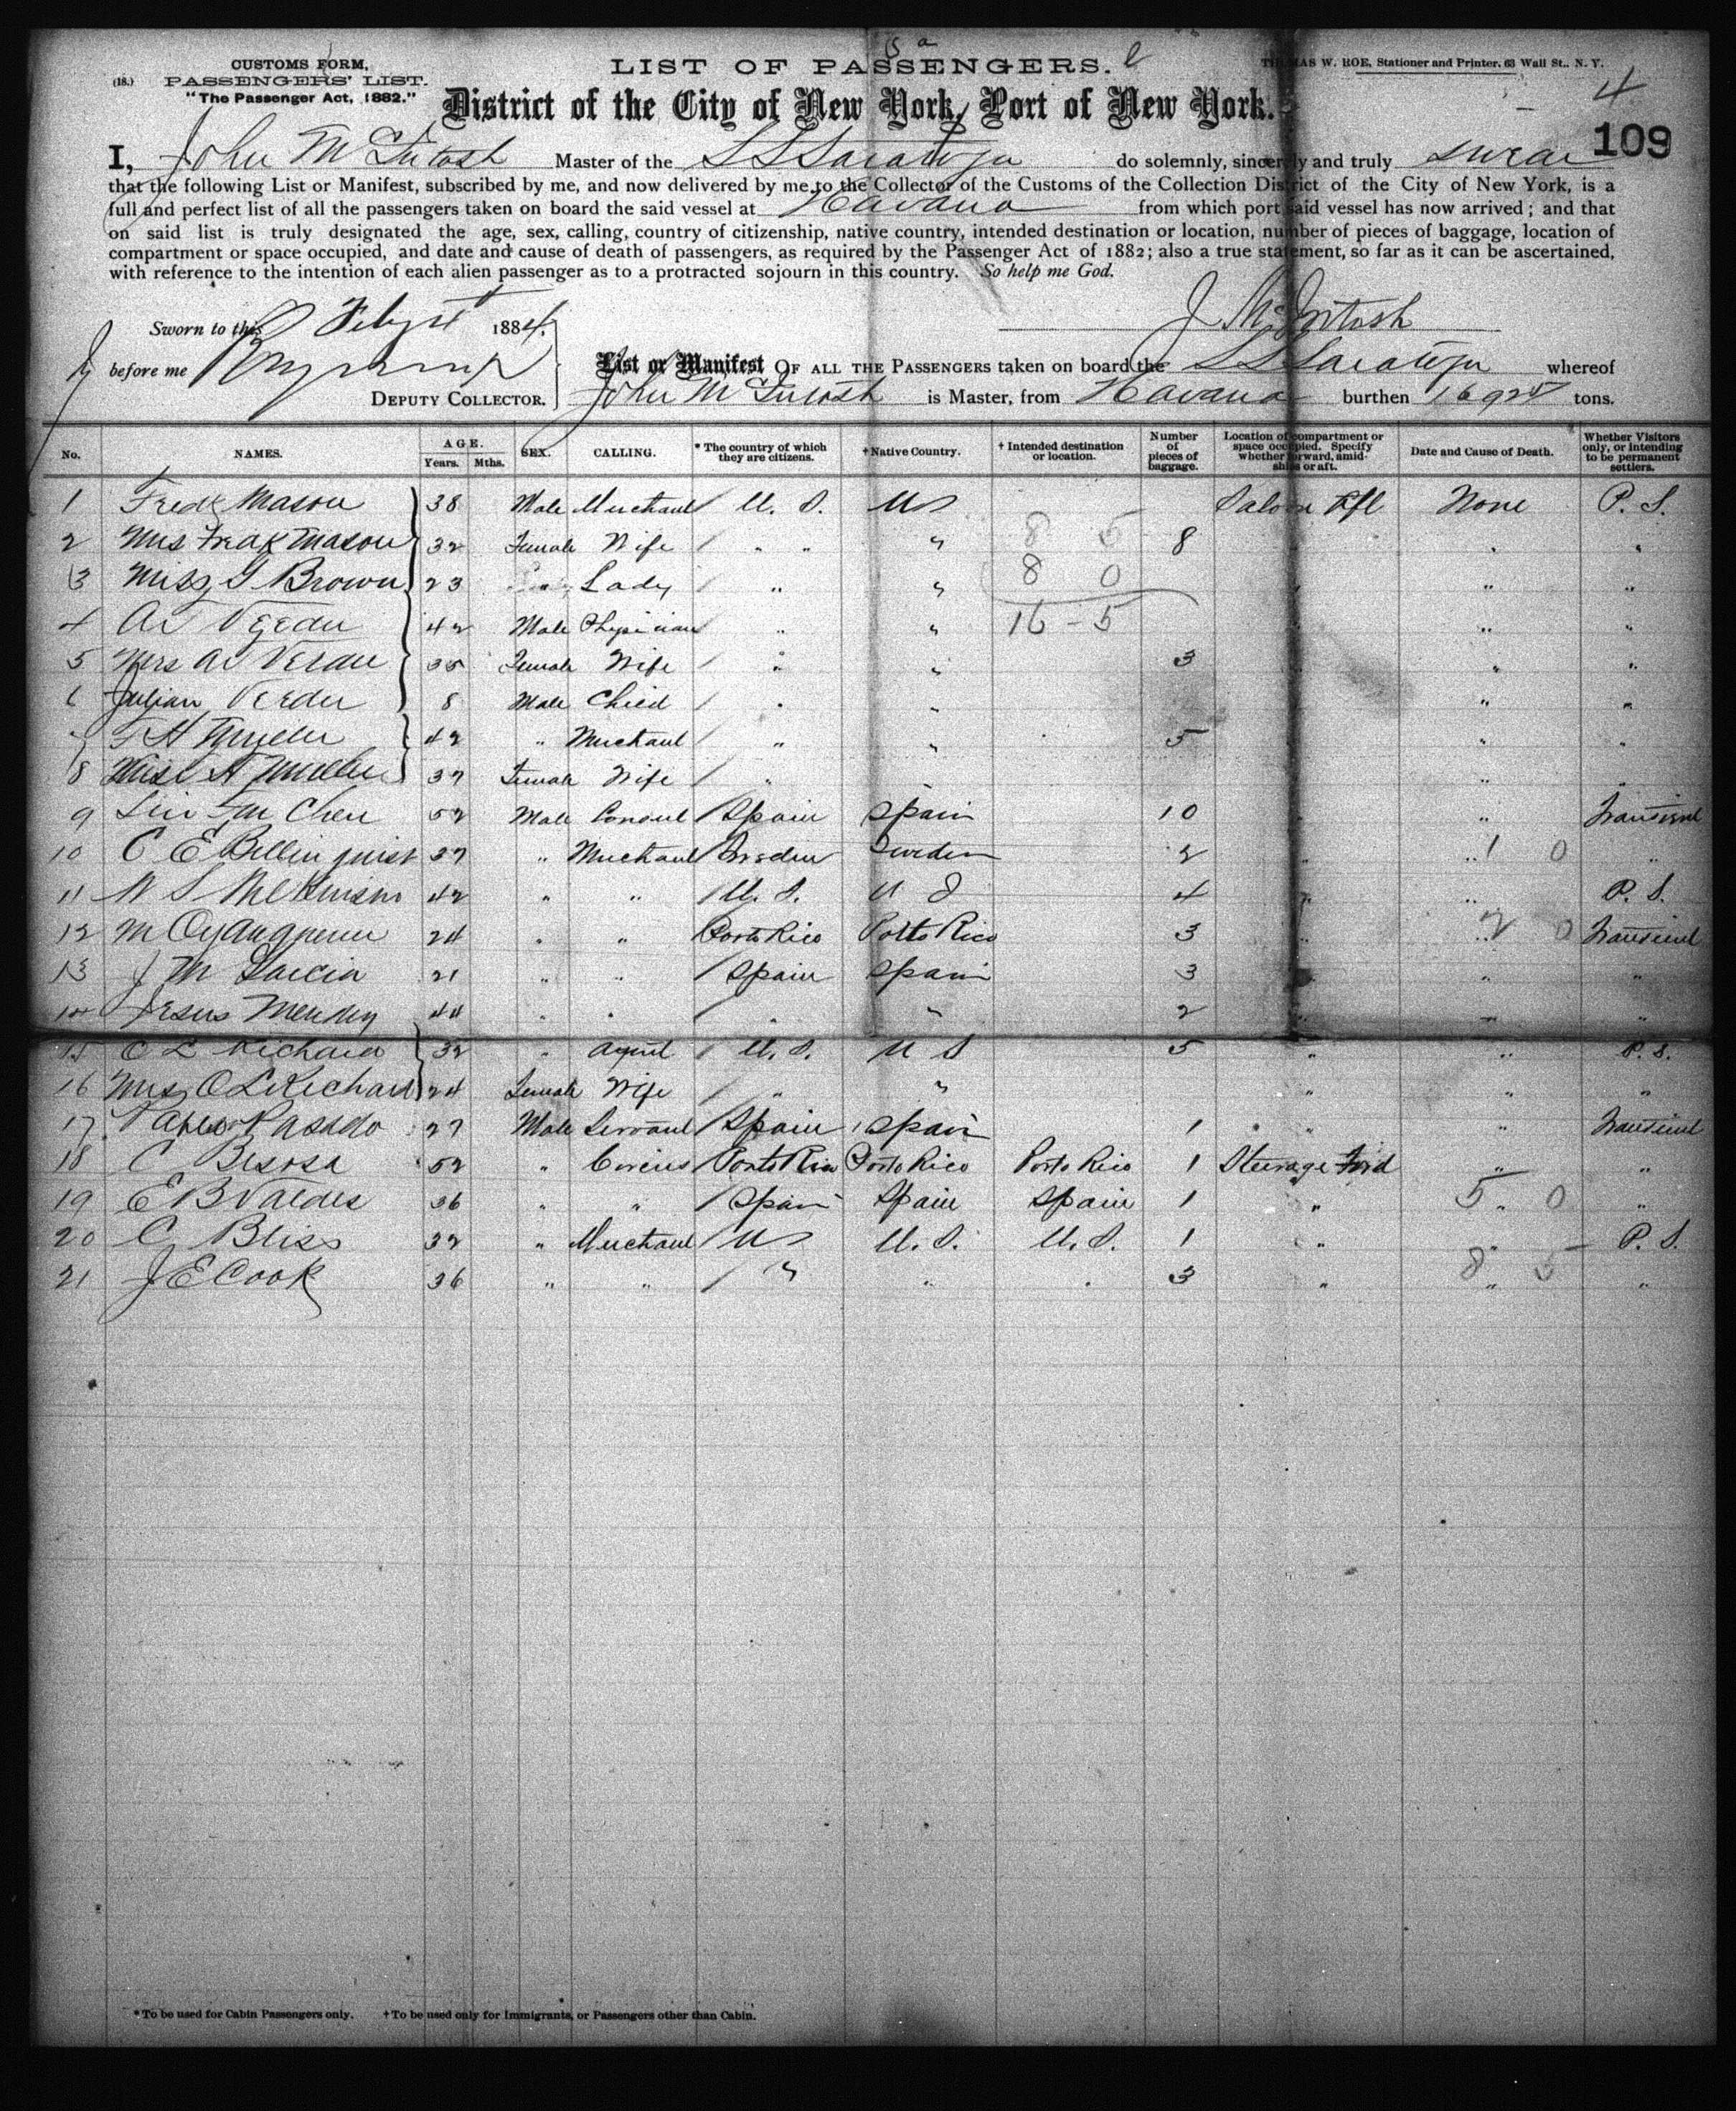 CUSTOMS FORM,
(18.) PASSENGERS' LIST.
"The Passenger Act, 1882."
LIST OF PASSENGERS.
THOMAS W. ROE, Stationer and Printer, 63 Wall St., N. Y.
4
District of the City of New York, Port of New York.
109
I, John McIntosh Master of the SS Saratoga do solemnly, sincerely and truly swear
that the following List or Manifest, subscribed by me, and now delivered by me to the Collector of the Customs of the Collection District of the City of New York, is a
full and perfect list of all the passengers taken on board the said vessel at Havana from which port said vessel has now arrived; and that
on said list is truly designated the age, sex, calling, country of citizenship, native country, intended destination or location, number of pieces of baggage, location of
compartment or space occupied, and date and cause of death of passengers, as required by the Passenger Act of 1882; also a true statement, so far as it can be ascertained,
with reference to the intention of each alien passenger as to a protracted sojourn in this country. So help me God.
J McIntosh
Sworn to this Feby 1884.
before me
DEPUTY COLLECTOR.
List or Manifest OF ALL THE PASSENGERS taken on board the SS Saratoga whereof
John McIntosh is Master, from Havana burthen 1692 tons.
No. NAMES. AGE. Years. Mths. SEX. CALLING. * The country of which they are citizens. † Native Country. † Intended destination or location. Number of pieces of baggage. Location of compartment or space occupied. Specify whether forward, amidships or aft. Date and Cause of Death. Whether Visitors only, or intending to be permanent settlers.
1 Fredk Mason 38 Male Merchant U. S. US Saloon Aft None P. S.
2 Mrs Fredk Mason 32 Female Wife " " " 8 " " "
3 Miss G Brown 23 " Lady " " " " "
4 42 Male Physician " " " " "
5 Mrs 35 Female Wife " " 3 " " "
6 Julian 8 Male Child " " " " "
7 F H 42 " Merchant " " 5 " " "
8 37 Female Wife " " " "
9 Chen 52 Male Consul Spain Spain 10 " " Transient
10 C E 37 " Merchant Sweden Sweden 2 " " "
11 42 " " U. S. U S 4 " " P. S.
12 M 24 " " Porto Rico Porto Rico 3 " " Transient
13 J M Garcia 21 " " Spain Spain 3 " " "
14 Jesus Mendez 44 " " " " 2 " " "
15 O L Richard 32 " Agent U. S. U S 5 " " P. S.
16 Mrs O L Richard 24 Female Wife " " " " "
17 27 Male Servant Spain Spain 1 " " Transient
18 C Besosa 52 " Porto Rico Porto Rico Porto Rico 1 Steerage Fwd " "
19 E B Valdes 36 " " Spain Spain Spain 1 " " "
20 C Bliss 32 " Merchant US U. S. U. S. 1 " " P. S.
21 J E Cook 36 " " " " " 3 " " "
8 5
8 0
16 - 5
1 0
2 0
5 0
8 5
* To be used for Cabin Passengers only. † To be used only for Immigrants, or Passengers other than Cabin.